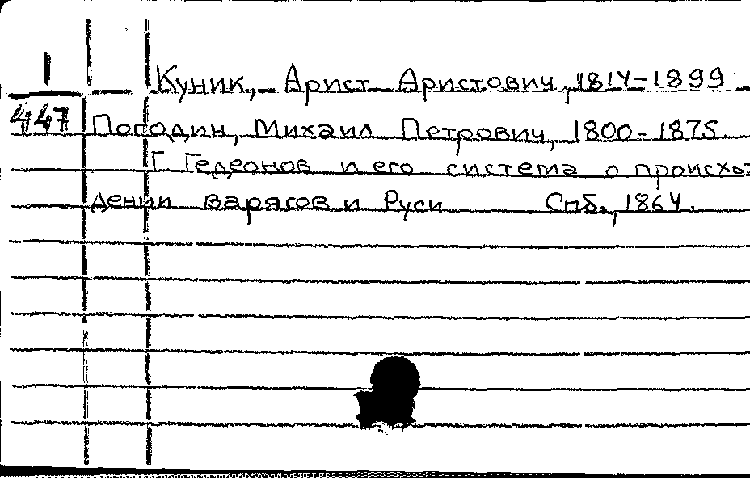 I Куник, Арист Аристович, 1814-1899
447 Погодин, Михаил Петрович, 1800-1875.
Г. Гедеонов и его система о происхо-
дении варягов и Руси Спб., 1864.